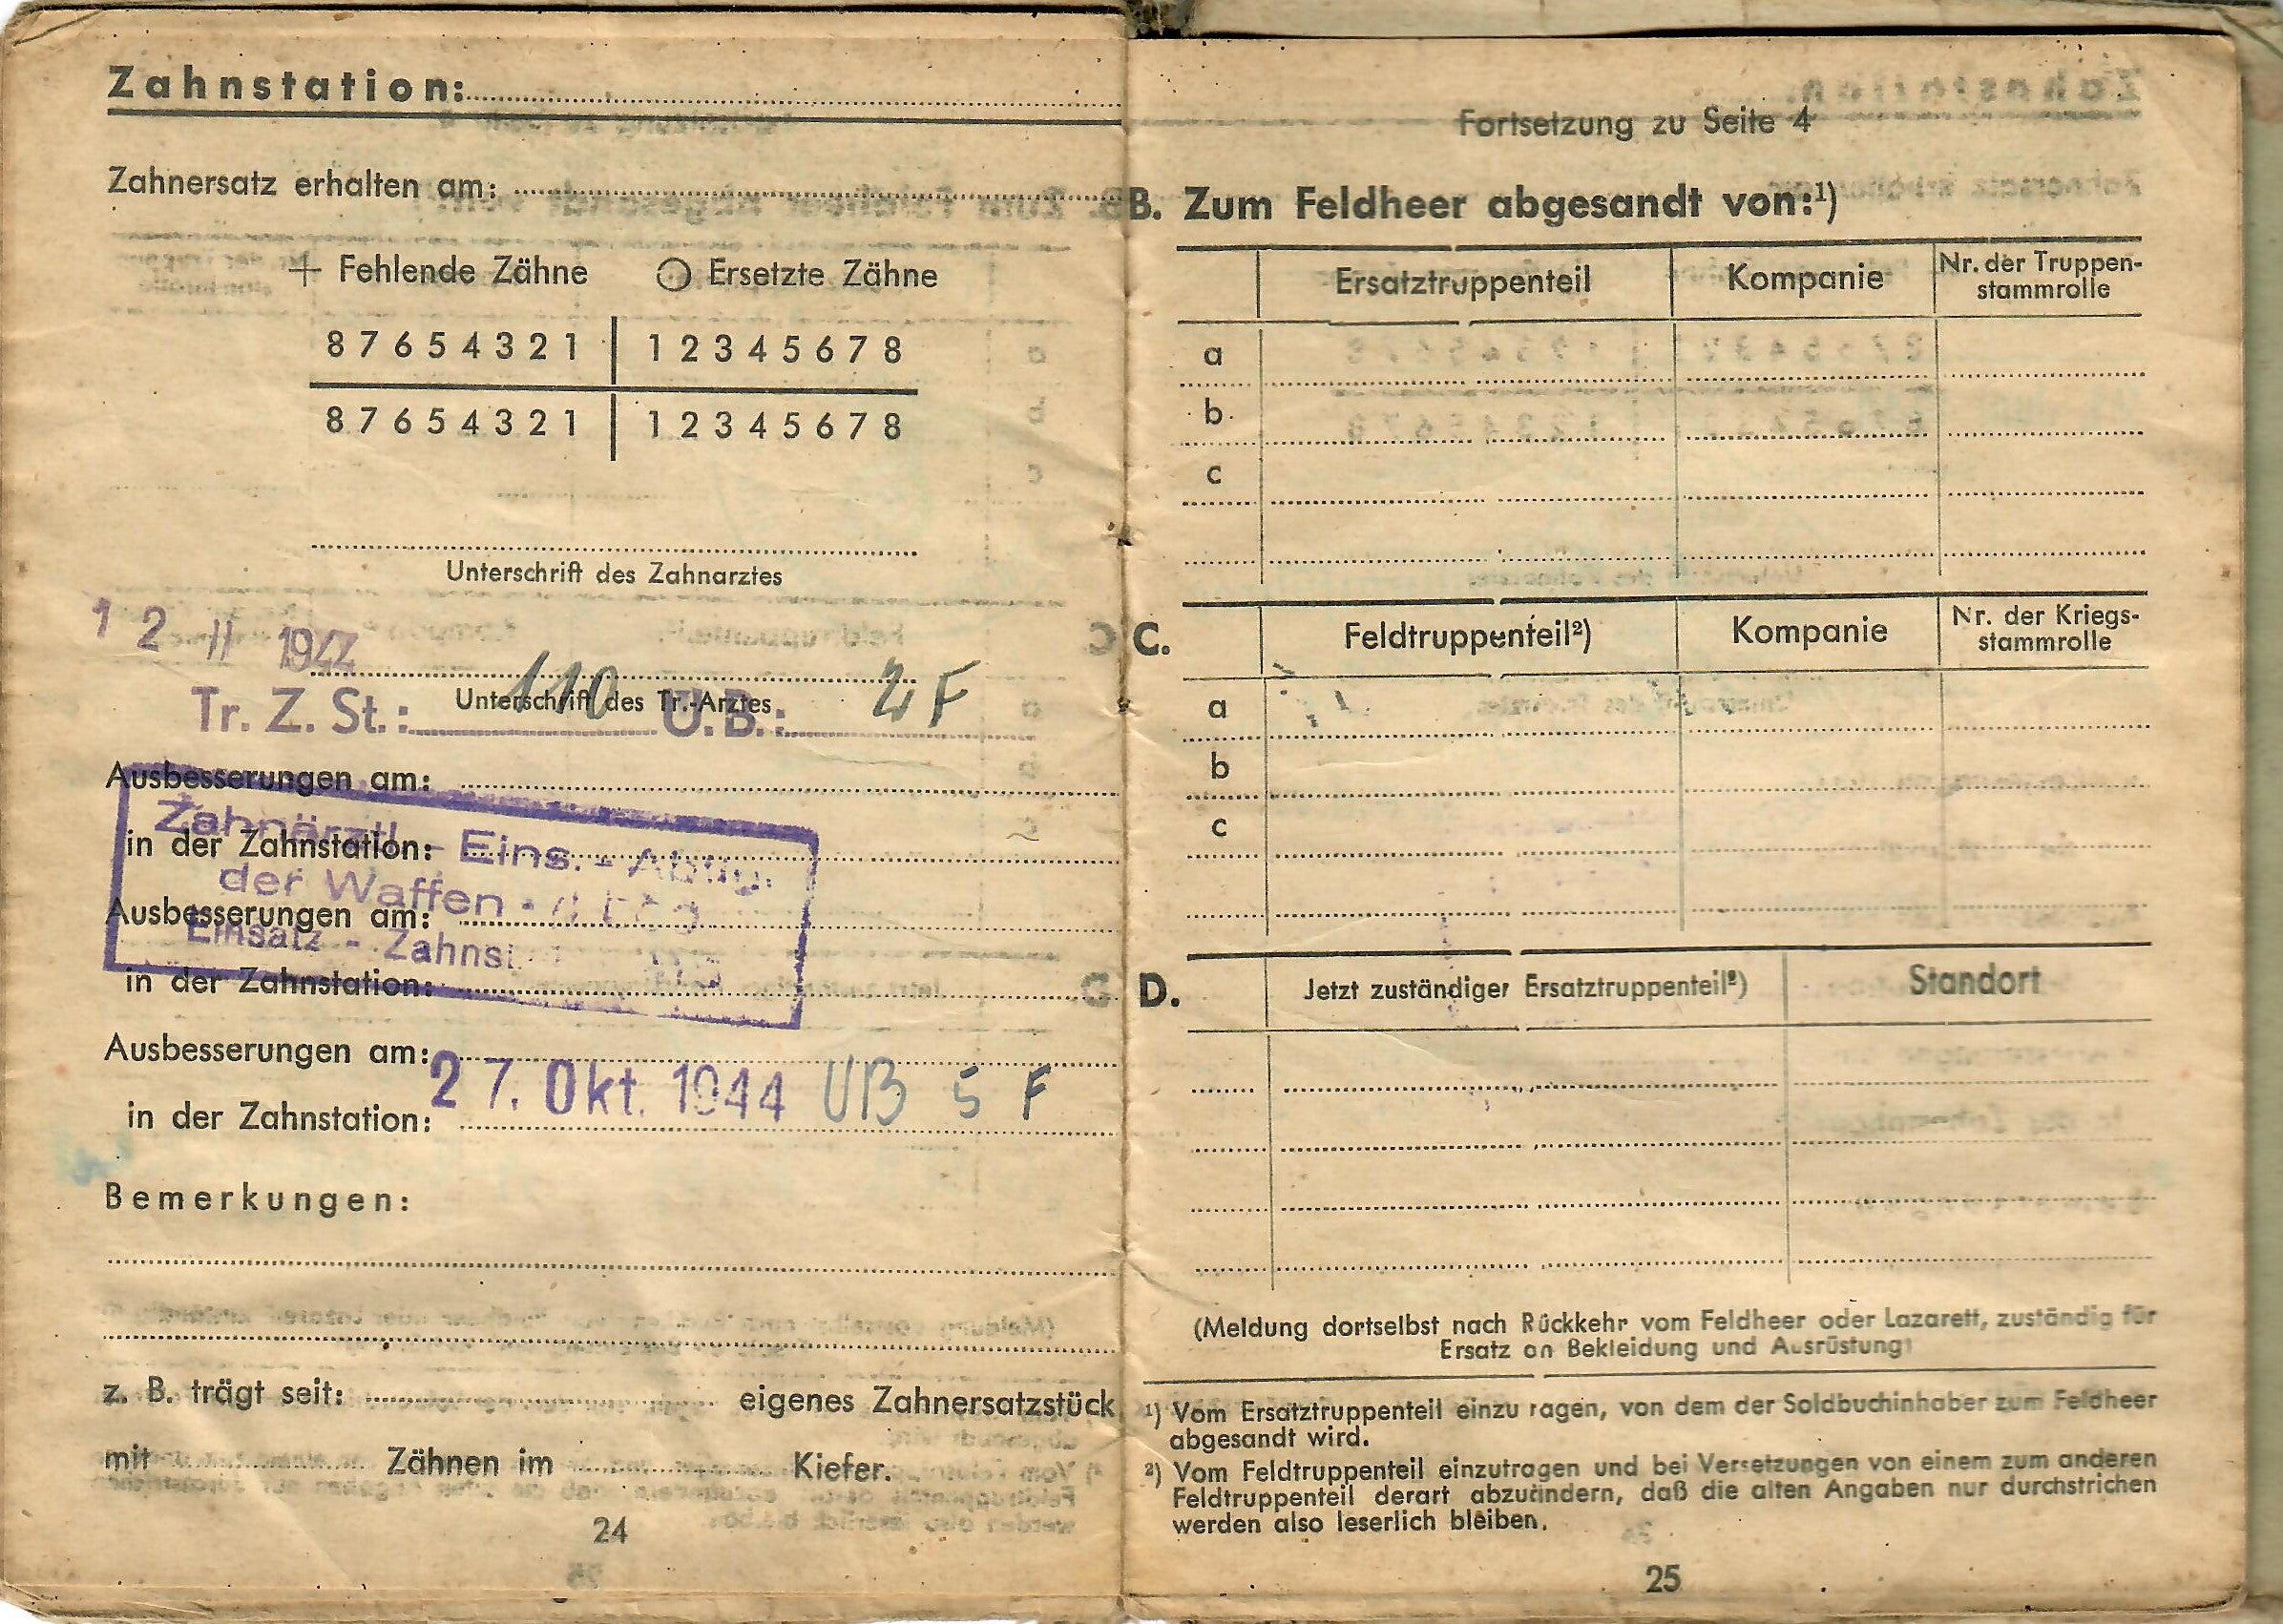 Zahnstation:
Zahnersatz erhalten am:
+ Fehlende Zähne ○ Ersetzte Zähne
8 7 6 5 4 3 2 1 | 1 2 3 4 5 6 7 8
8 7 6 5 4 3 2 1 | 1 2 3 4 5 6 7 8
Unterschrift des Zahnarztes
12 11 1944
Unterschrift des Tr.-Arztes
Tr. Z. St.: 110 U.B.: 2 F
Ausbesserungen am:
Zahnärztl. - Eins. - Abtlg.
in der Zahnstation:
der Waffen-
Ausbesserungen am:
Einsatz - Zahnst
in der Zahnstation:
Ausbesserungen am:
27. Okt. 1944 UB 5 F
in der Zahnstation:
Bemerkungen:
z. B. trägt seit: eigenes Zahnersatzstück
mit Zähnen im Kiefer.
24
Fortsetzung zu Seite 4
B. Zum Feldheer abgesandt von:¹)
Ersatztruppenteil Kompanie Nr. der Truppen-
stammrolle
a
b
c
C. Feldtruppenteil²) Kompanie Nr. der Kriegs-
stammrolle
a
b
c
D. Jetzt zuständiger Ersatztruppenteil²) Standort
(Meldung dortselbst nach Rückkehr vom Feldheer oder Lazarett, zuständig für
Ersatz an Bekleidung und Ausrüstung)
¹) Vom Ersatztruppenteil einzu ragen, von dem der Soldbuchinhaber zum Feldheer
abgesandt wird.
²) Vom Feldtruppenteil einzutragen und bei Versetzungen von einem zum anderen
Feldtruppenteil derart abzuändern, daß die alten Angaben nur durchstrichen
werden also leserlich bleiben.
25